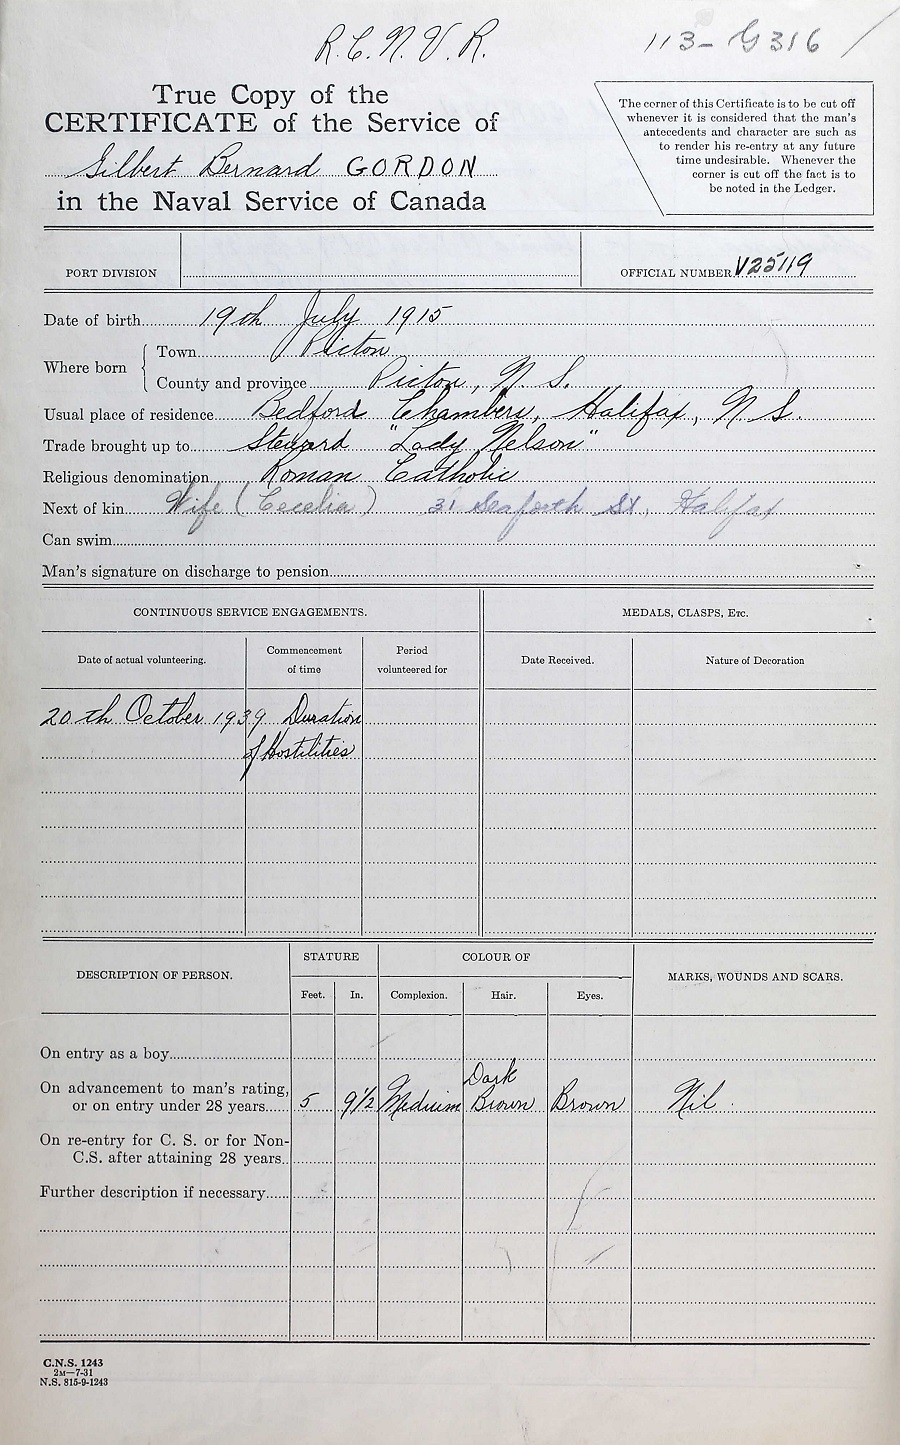 R.C.N.V.R.
113-G316
True Copy of the
CERTIFICATE of the Service of
Gilbert Bernard GORDON
in the Naval Service of Canada
The corner of this Certificate is to be cut off
whenever it is considered that the man's
antecedents and character are such as
to render his re-entry at any future
time undesirable. Whenever the
corner is cut off the fact is to
be noted in the Ledger.
PORT DIVISION
OFFICIAL NUMBER V25119
Date of birth 19th July 1915
Where born
Town Pictou
County and province Pictou, N.S.
Usual place of residence Bedford Chambers, Halifax, N.S.
Trade brought up to Steward "Lady Nelson"
Religious denomination Roman Catholic
Next of kin Wife (Cecelia) 31 Seaforth St, Halifax
Can swim
Man's signature on discharge to pension
CONTINUOUS SERVICE ENGAGEMENTS. MEDALS, CLASPS, Etc.
Date of actual volunteering. Commencement of time Period volunteered for Date Received. Nature of Decoration
20th October 1939 Duration
of Hostilities
DESCRIPTION OF PERSON. STATURE COLOUR OF MARKS, WOUNDS AND SCARS.
Feet. In. Complexion. Hair. Eyes.
On entry as a boy
On advancement to man's rating,
or on entry under 28 years 5 9½ Medium Dark Brown Brown Nil.
On re-entry for C. S. or for Non-
C.S. after attaining 28 years
Further description if necessary
C.N.S. 1243
2M—7-31
N.S. 815-9-1243